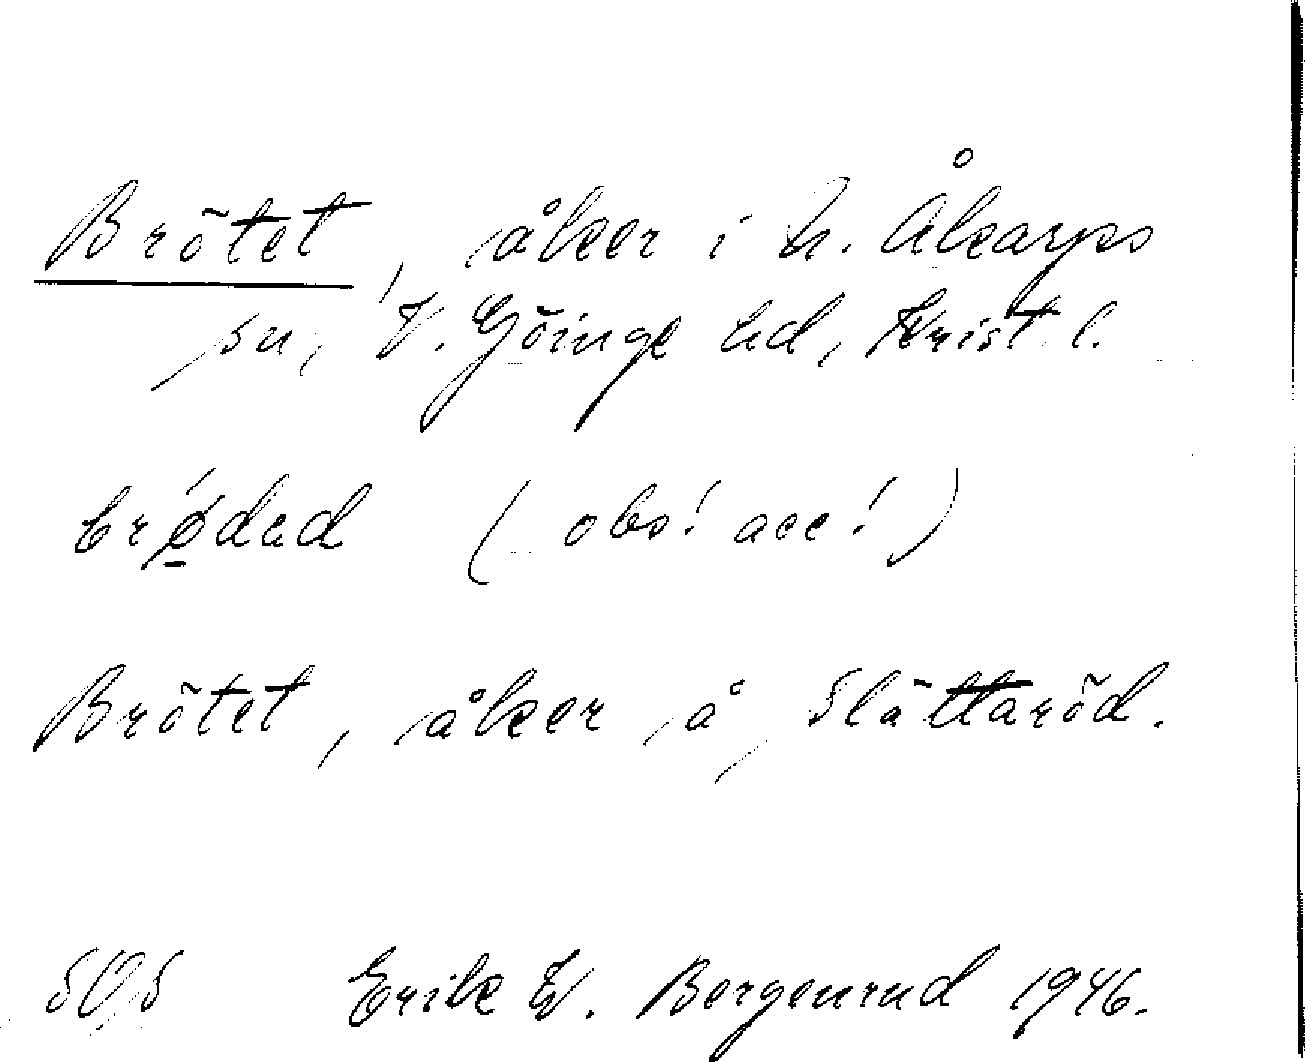 Brötet, åker i N. Åkarps
sn, V. Göinge hd, Krist. l.
(obs! acc!)
Brötet, åker å Slättaröd.
SOS Erik W. Bergenrud 1946.